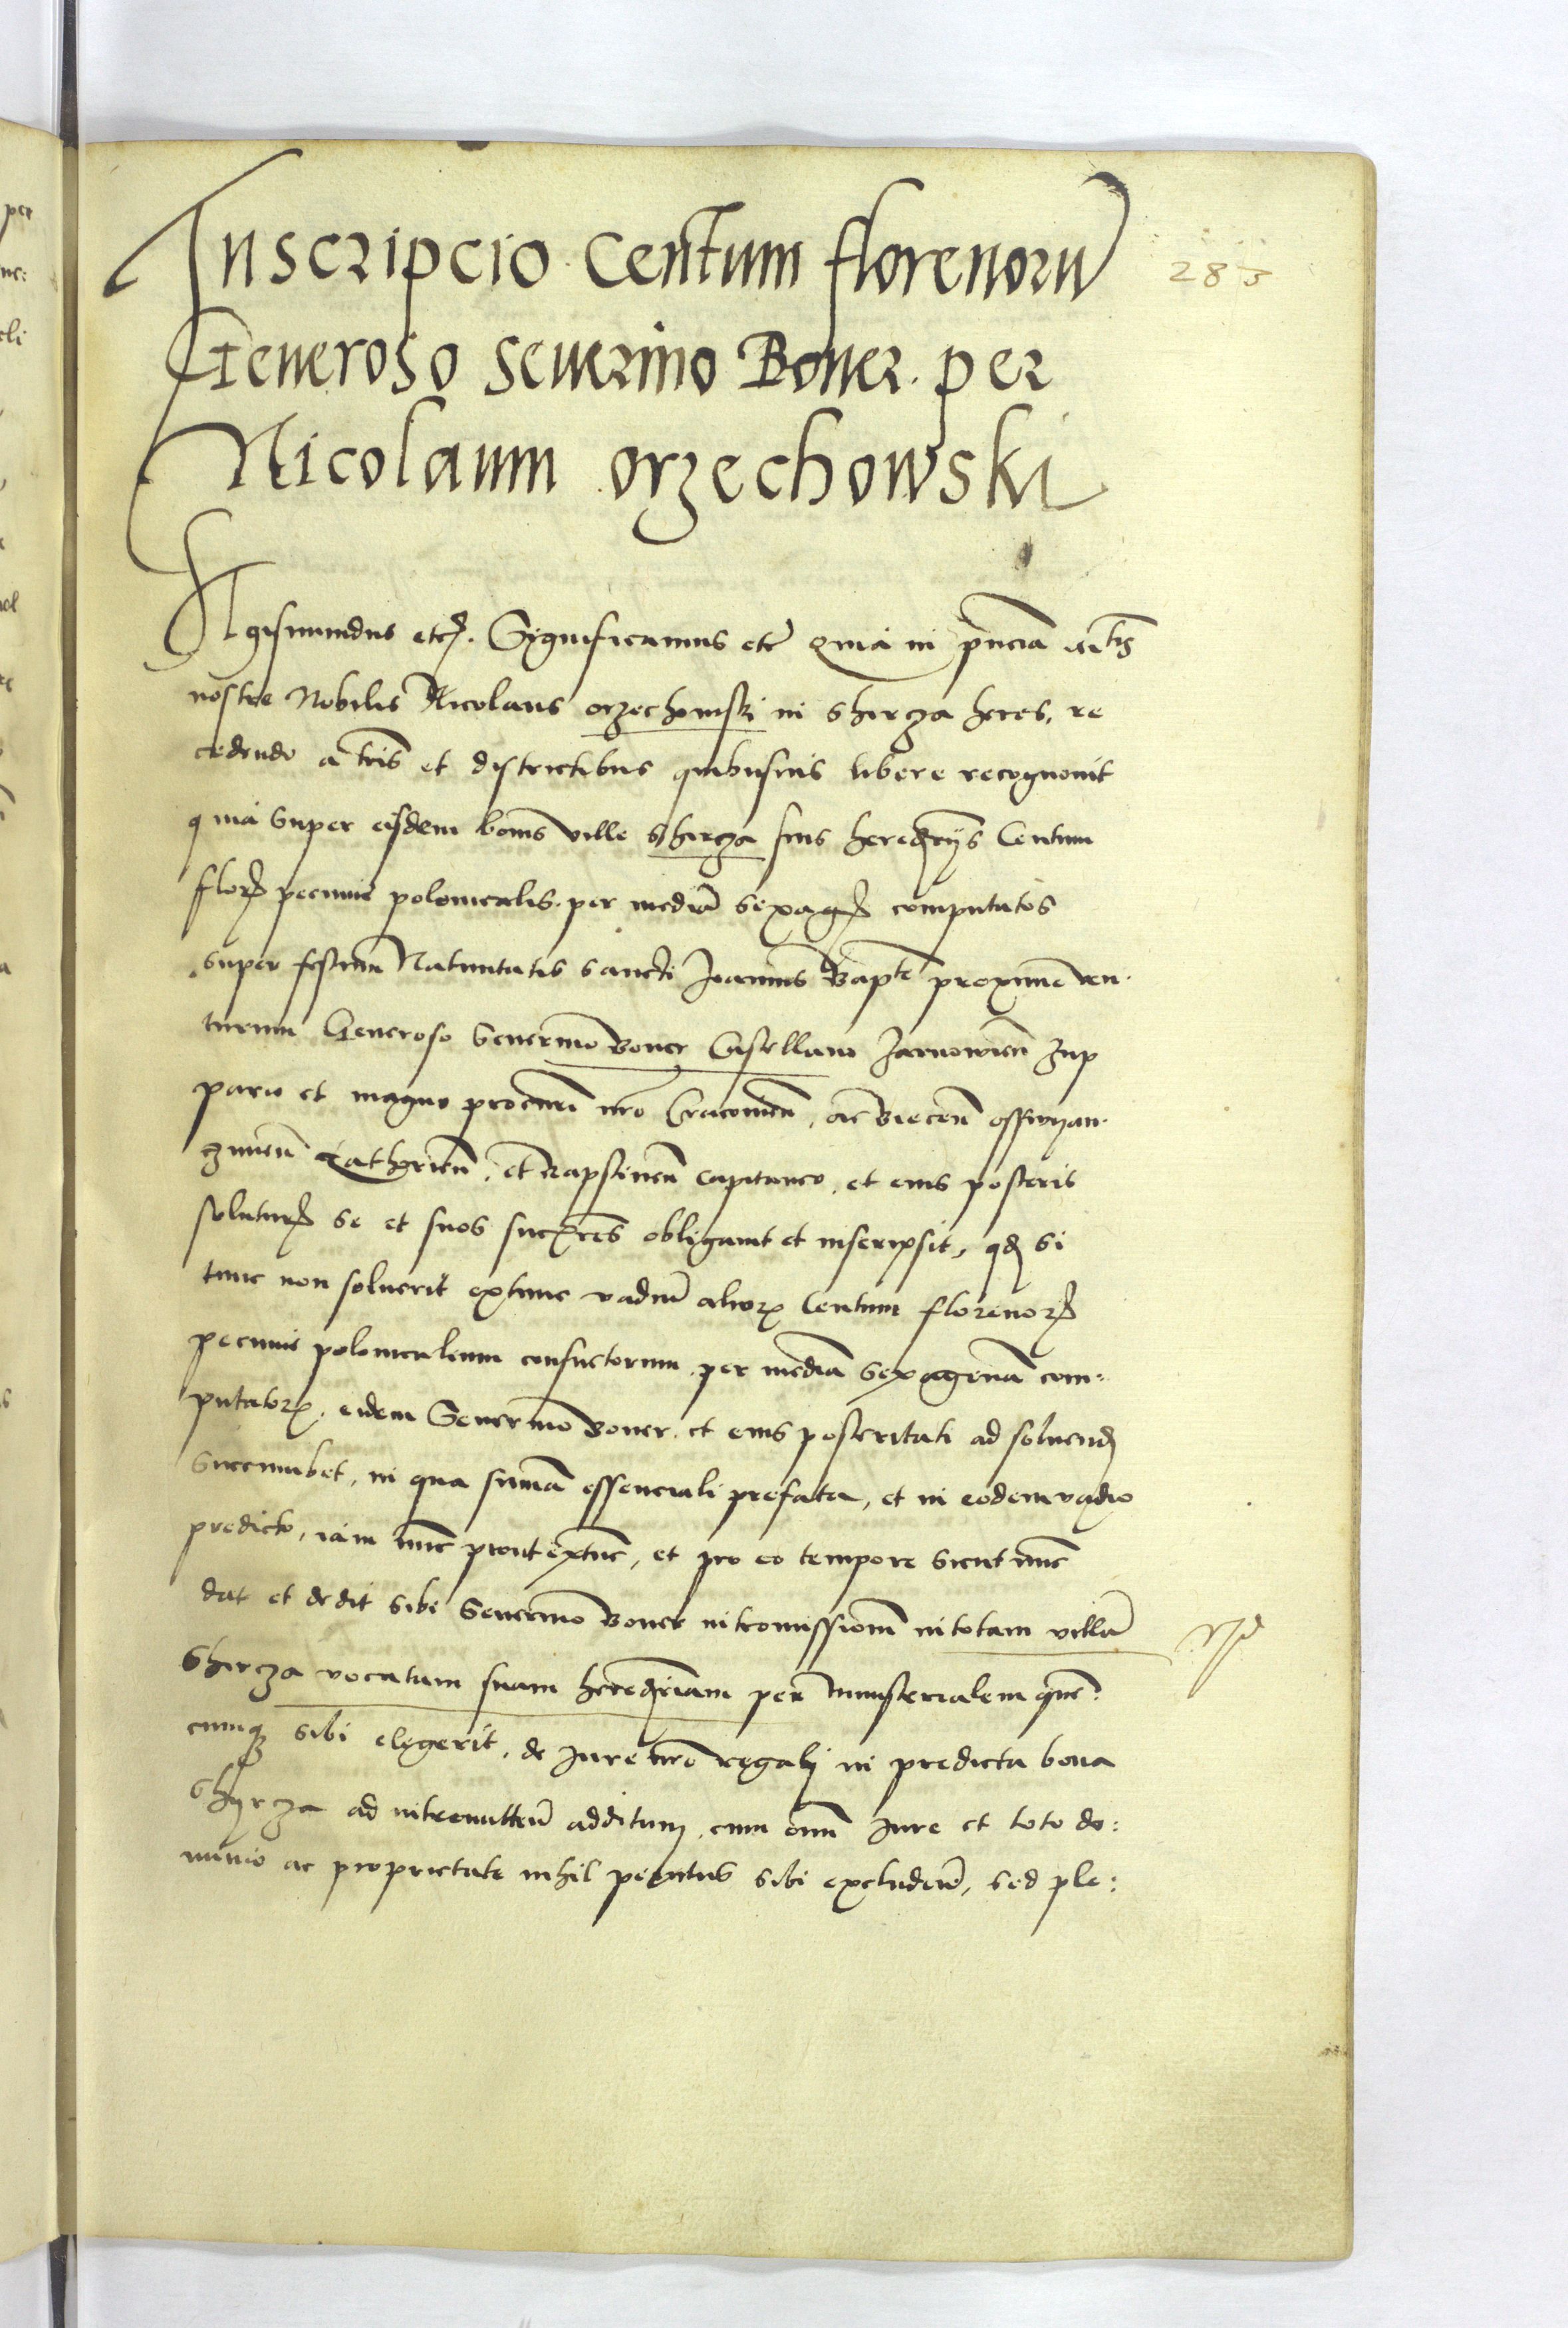 Inscripcio Centum florenoru
Generoso Seuerino Boner. per
Nicolaum orzechowski
283
Sigismundus etc. Significamus etc Quia in pncia
nostre Nobilis Nicolaus orzechowski in heres, re
cedendo a tris et districtibus quibusuis libere recognouit
quia super eisdem bonis ville suis Centum
flor pecunie polonicalis. per media sexage computatos
super festum Natiuitatis Sancti Joannis Bapte proxime ven.
turum Generoso Seuerino Boner Castellano Zarnowien zup
pario et magno procurri nro Cracouien, ac Biecen osswyan.
czimen et Rapstinen Capitaneo, et eius posteris
solutur se et suos obligauit et inscripsit, qd si
tunc non soluerit extunc vadiu alior Centum florenor
pecunie polonicalium per media sexagena com:
putator, eidem Seuerino Boner, et eius posteritati ad soluend
succumbet, in qua suma essenciali prefata, et in eodem vadio
predicto, iam nunc prout extunc, et pro eo tempore sicut nunc
dat et dedit sibi Seuerino Boner intromissionem in totam villa
vocatam suam per ministerialem quem:
cunq sibi elegerit, de Jure nro regali in predicta bona
ad additum, cum omni Jure et toto do:
minio ac proprietate nihil penitus sibi excludere, sed ple: